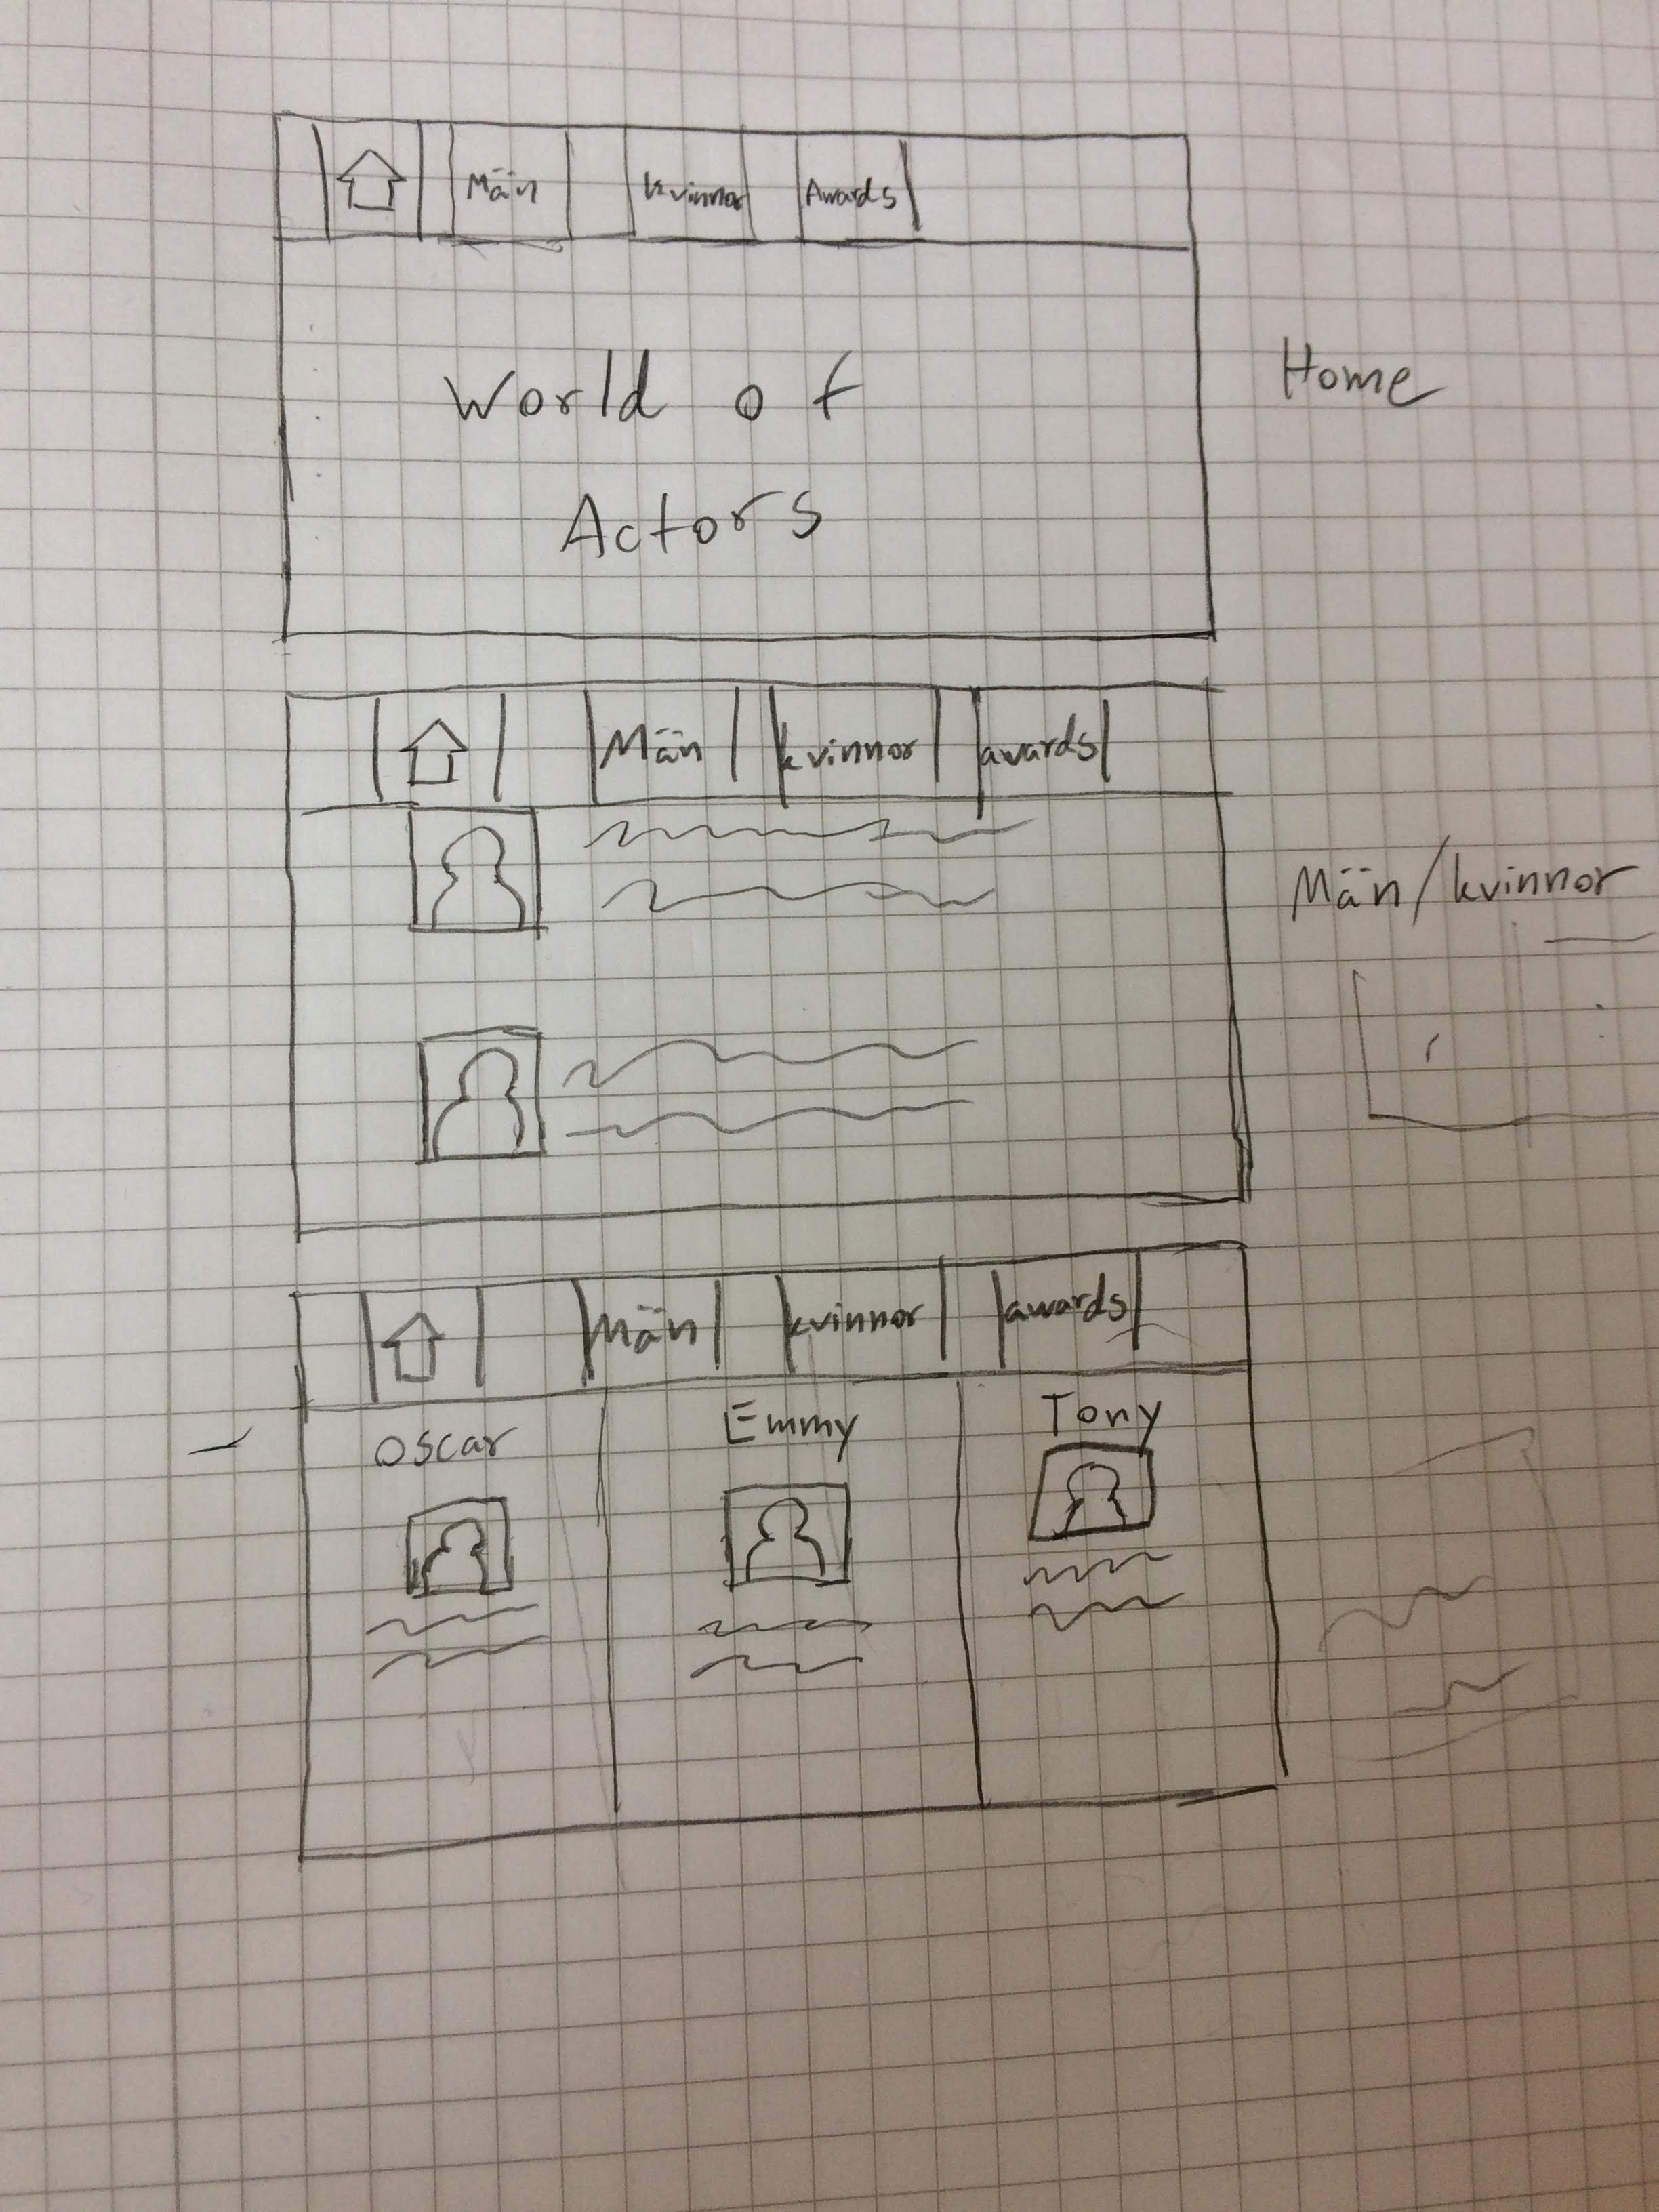 Män kvinnor Awards
World of
Home
Actors
Män kvinnor awards
Män/kvinnor
Män kvinnor awards
Oscar Emmy Tony